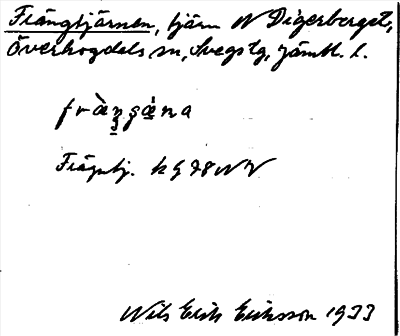 Frängtjärnen, tjärn N Digerberget,
Överhogdals sn, Svegs tg, Jämtl. l.
Frängtj. k G 78 NV
Nils Erik Eriksson 1933